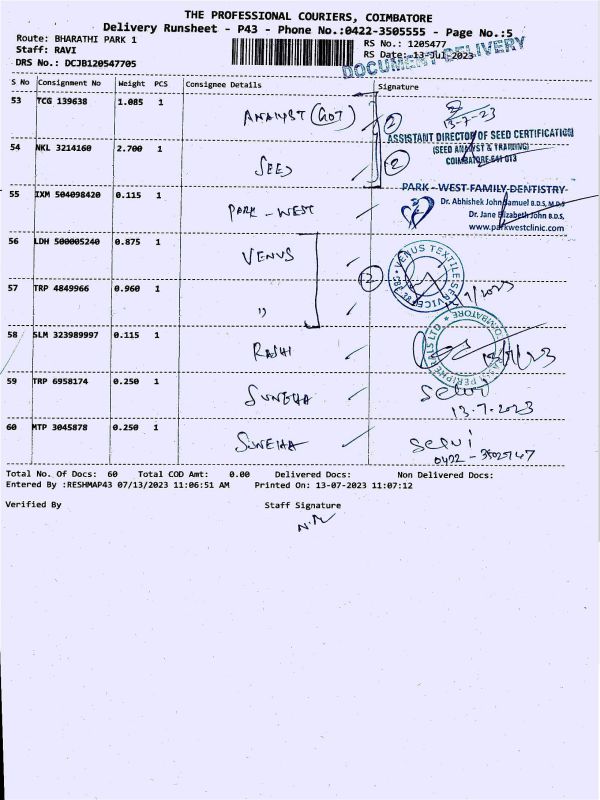 THE PROFESSIONAL COURIERS, COIMBATORE
Delivery Runsheet - P43 - Phone No.:0422-3505555 - Page No.:5
Route: BHARATHI PARK 1
RS No.: 1205477
Staff: RAVI
RS Date: 13-Jul-2023
DRS No.: DCJB120547705
DOCUMENT DELIVERY
S No Consignment No Weight PCS Consignee Details Signature
53 TCG 139638 1.085 1 ANALYST (GOT) 2 13-7-23
ASSISTANT DIRECTOR OF SEED CERTIFICATION
(SEED ANALYST & TRAINING)
COIMBATORE-641 013
54 NKL 3214160 2.700 1 SEED 2
55 IXM 504098420 0.115 1 PARK - WEST
PARK - WEST FAMILY DENTISTRY
Dr. Abhishek John Samuel B.D.S, M.D.S
Dr. Jane Elizabeth John B.D.S,
www.parkwestclinic.com
56 LDH 500005240 0.875 1 VENUS 2
VENUS TEXTILE SERVICE
57 TRP 4849966 0.960 1 "
58 SLM 323989997 0.115 1 RASHI
RASHI PERIPHERALS LTD. * COIMBATORE *
59 TRP 6958174 0.250 1 SUNEHA Selvi
13.7.2023
60 MTP 3045878 0.250 1 SUNEHA Selvi
Total No. Of Docs: 60 Total COD Amt: 0.00 Delivered Docs: Non Delivered Docs:
Entered By :RESHMAP43 07/13/2023 11:06:51 AM Printed On: 13-07-2023 11:07:12
Verified By Staff Signature